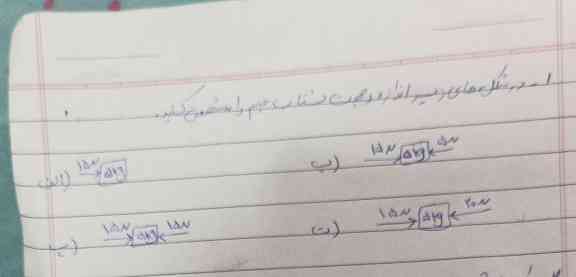 ۱- در شکل‌های زیر اندازه و جهت شتاب جسم را مشخص کنید.
الف) ۱۵N ۵kg
ب) ۱۵N ۵kg ۵N
پ) ۱۵N ۵kg ۱۵N
ت) ۱۵N ۵kg ۲۰N